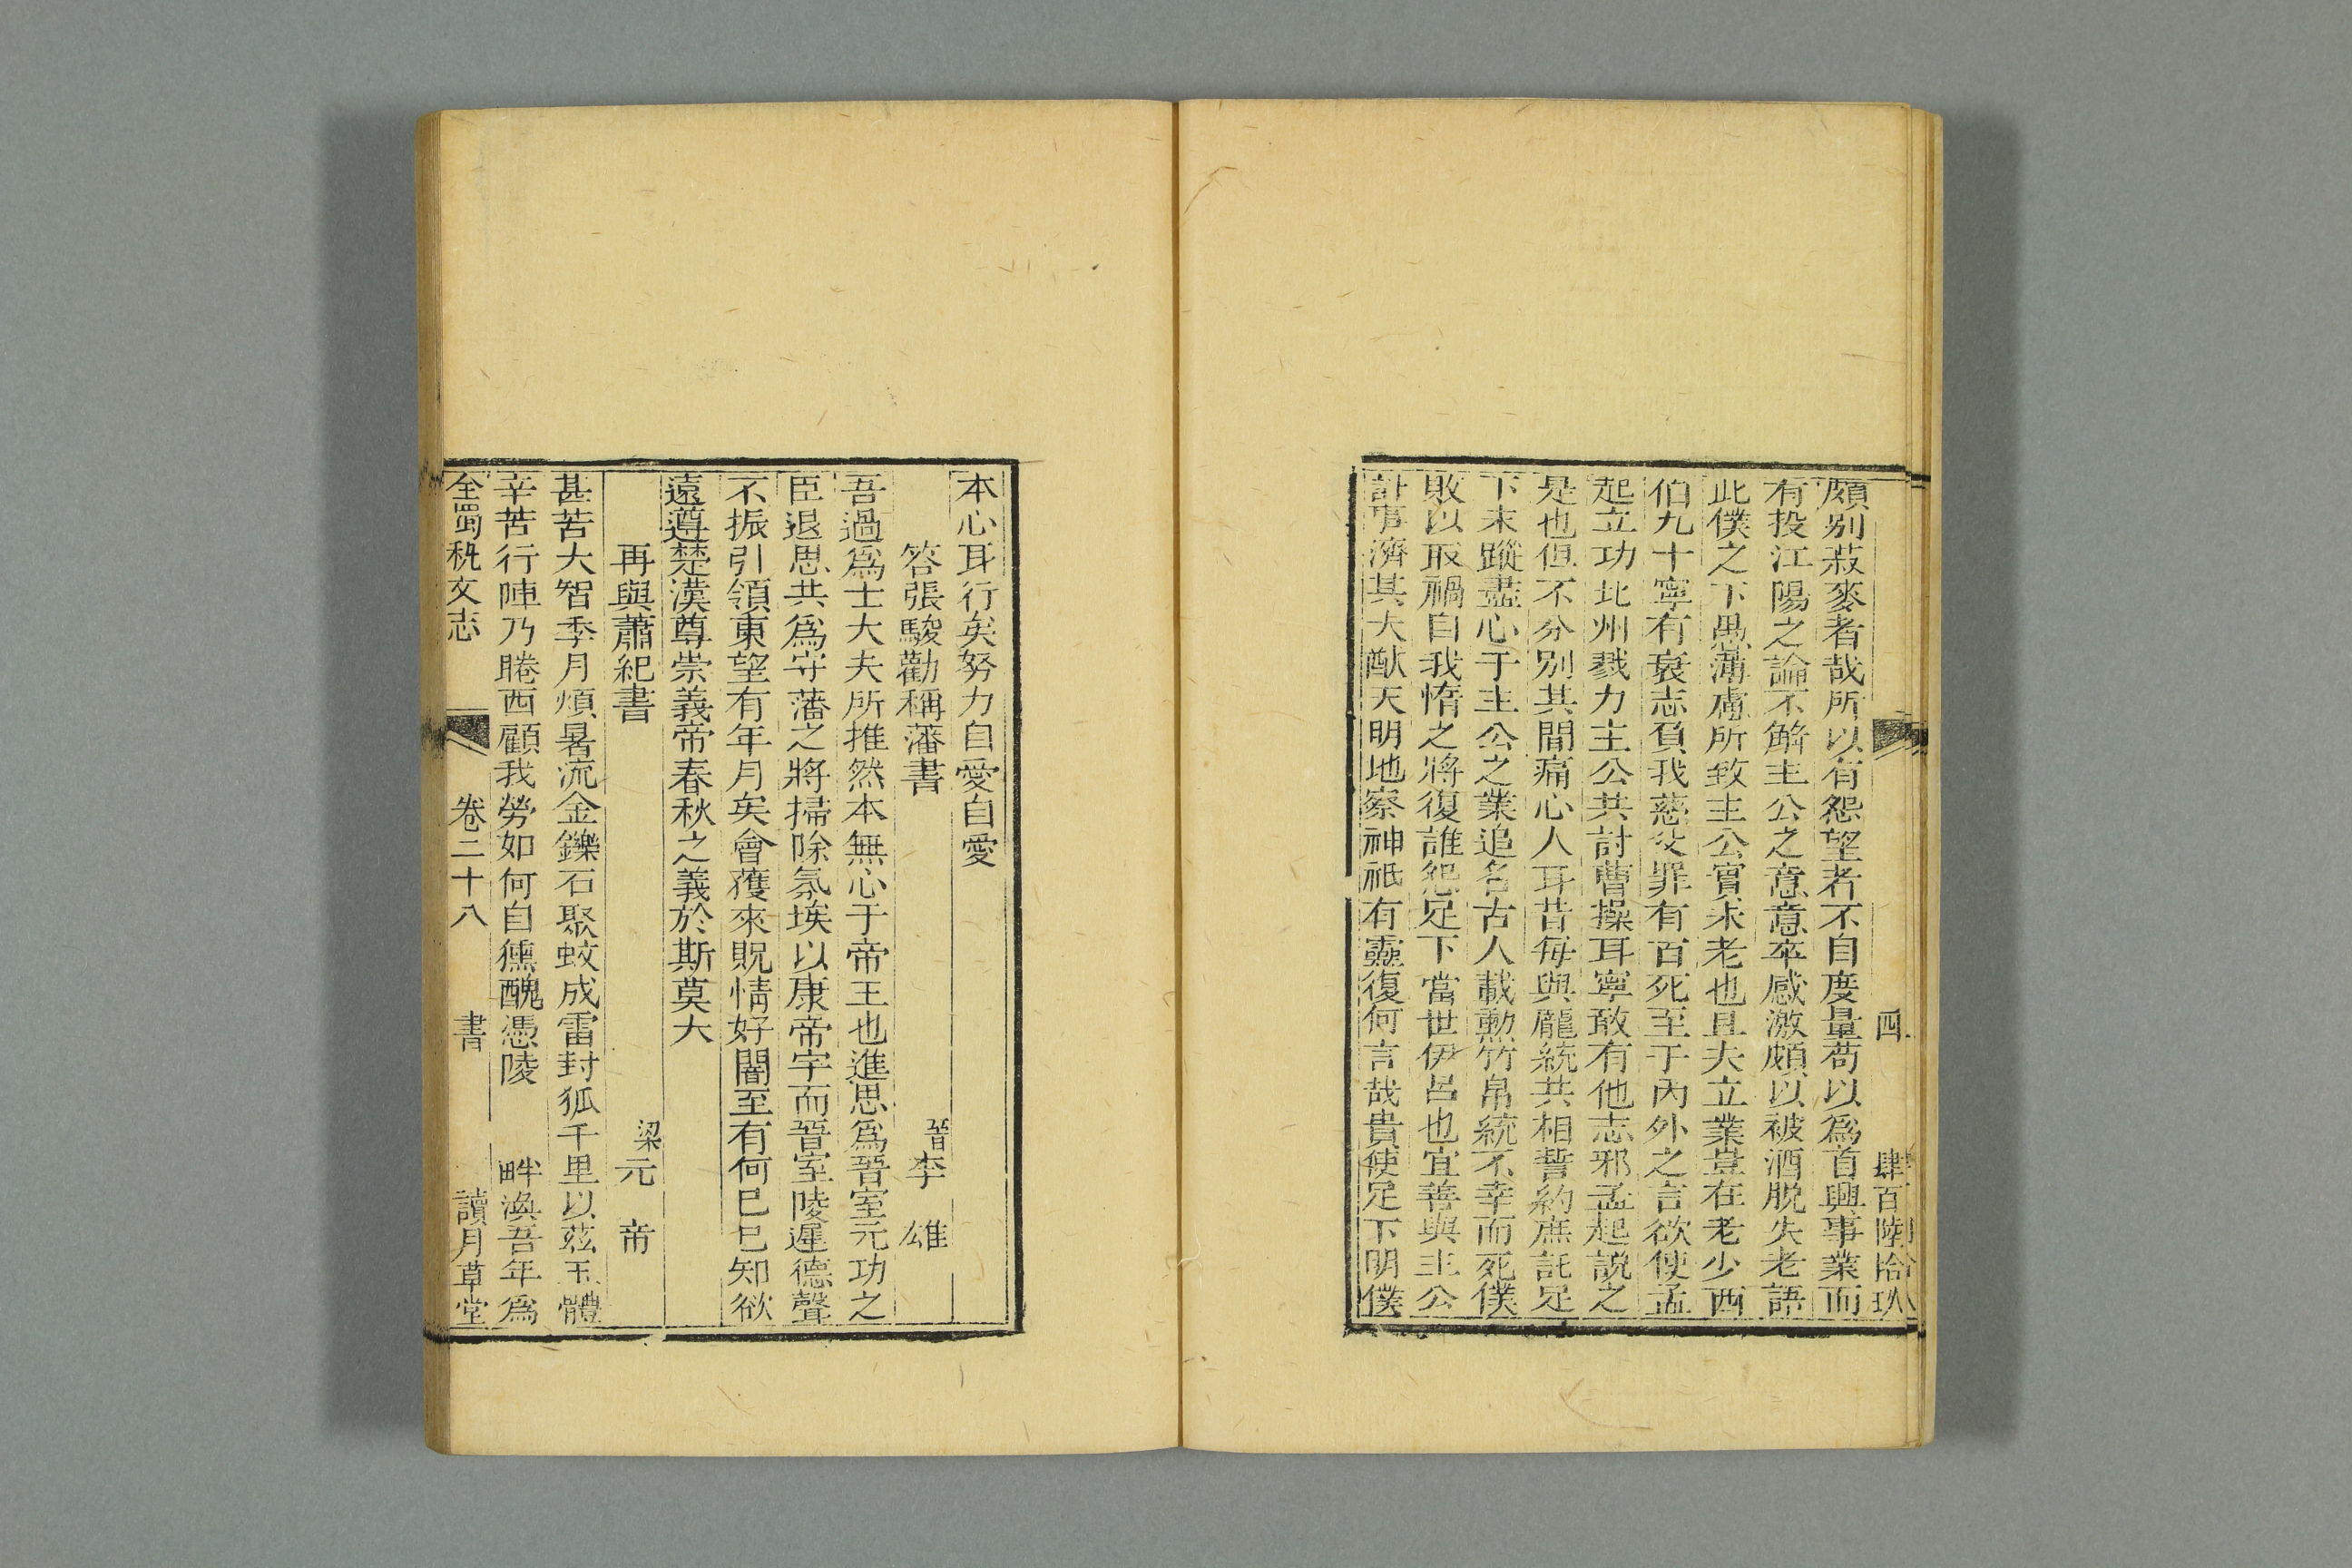 四　肆百陸拾玖
頗別菽麥者哉所以有怨望者不自度量苟以爲首興事業而
有投江陽之論不解主公之意意卒感激頗以被酒脫失老語
此僕之下愚薄慮所致主公實未老也且夫立業豈在老少西
伯九十寧有衰志負我慈父罪有百死至于內外之言欲使孟
起立功北州戮力主公共討曹操耳寧敢有他志邪孟起說之
是也但不分別其間痛心人耳昔每與龐統共相誓約庶託足
下末蹤盡心于主公之業追名古人載勳竹帛統不幸而死僕
敗以取禍自我惰之將復誰怨足下當世伊呂也宜善與主公
計事濟其大猷天明地察神祇有靈復何言哉貴使足下明僕
本心耳行矣努力自愛自愛
答張駿勸稱藩書　晉李　雄
吾過爲士大夫所推然本無心于帝王也進思爲晉室元功之
臣退思共爲守藩之將掃除氛埃以康帝宇而晉室陵遲德聲
不振引領東望有年月矣會獲來貺情好闇至有何已已知欲
遠遵楚漢尊崇義帝春秋之義於斯莫大
再與蕭紀書　梁元　帝
甚苦大智季月煩暑流金鑠石聚蚊成雷封狐千里以茲玉體
辛苦行陣乃睠西顧我勞如何自獯醜憑陵　畔渙吾年爲
全蜀秇文志　卷二十八　書　讀月草堂